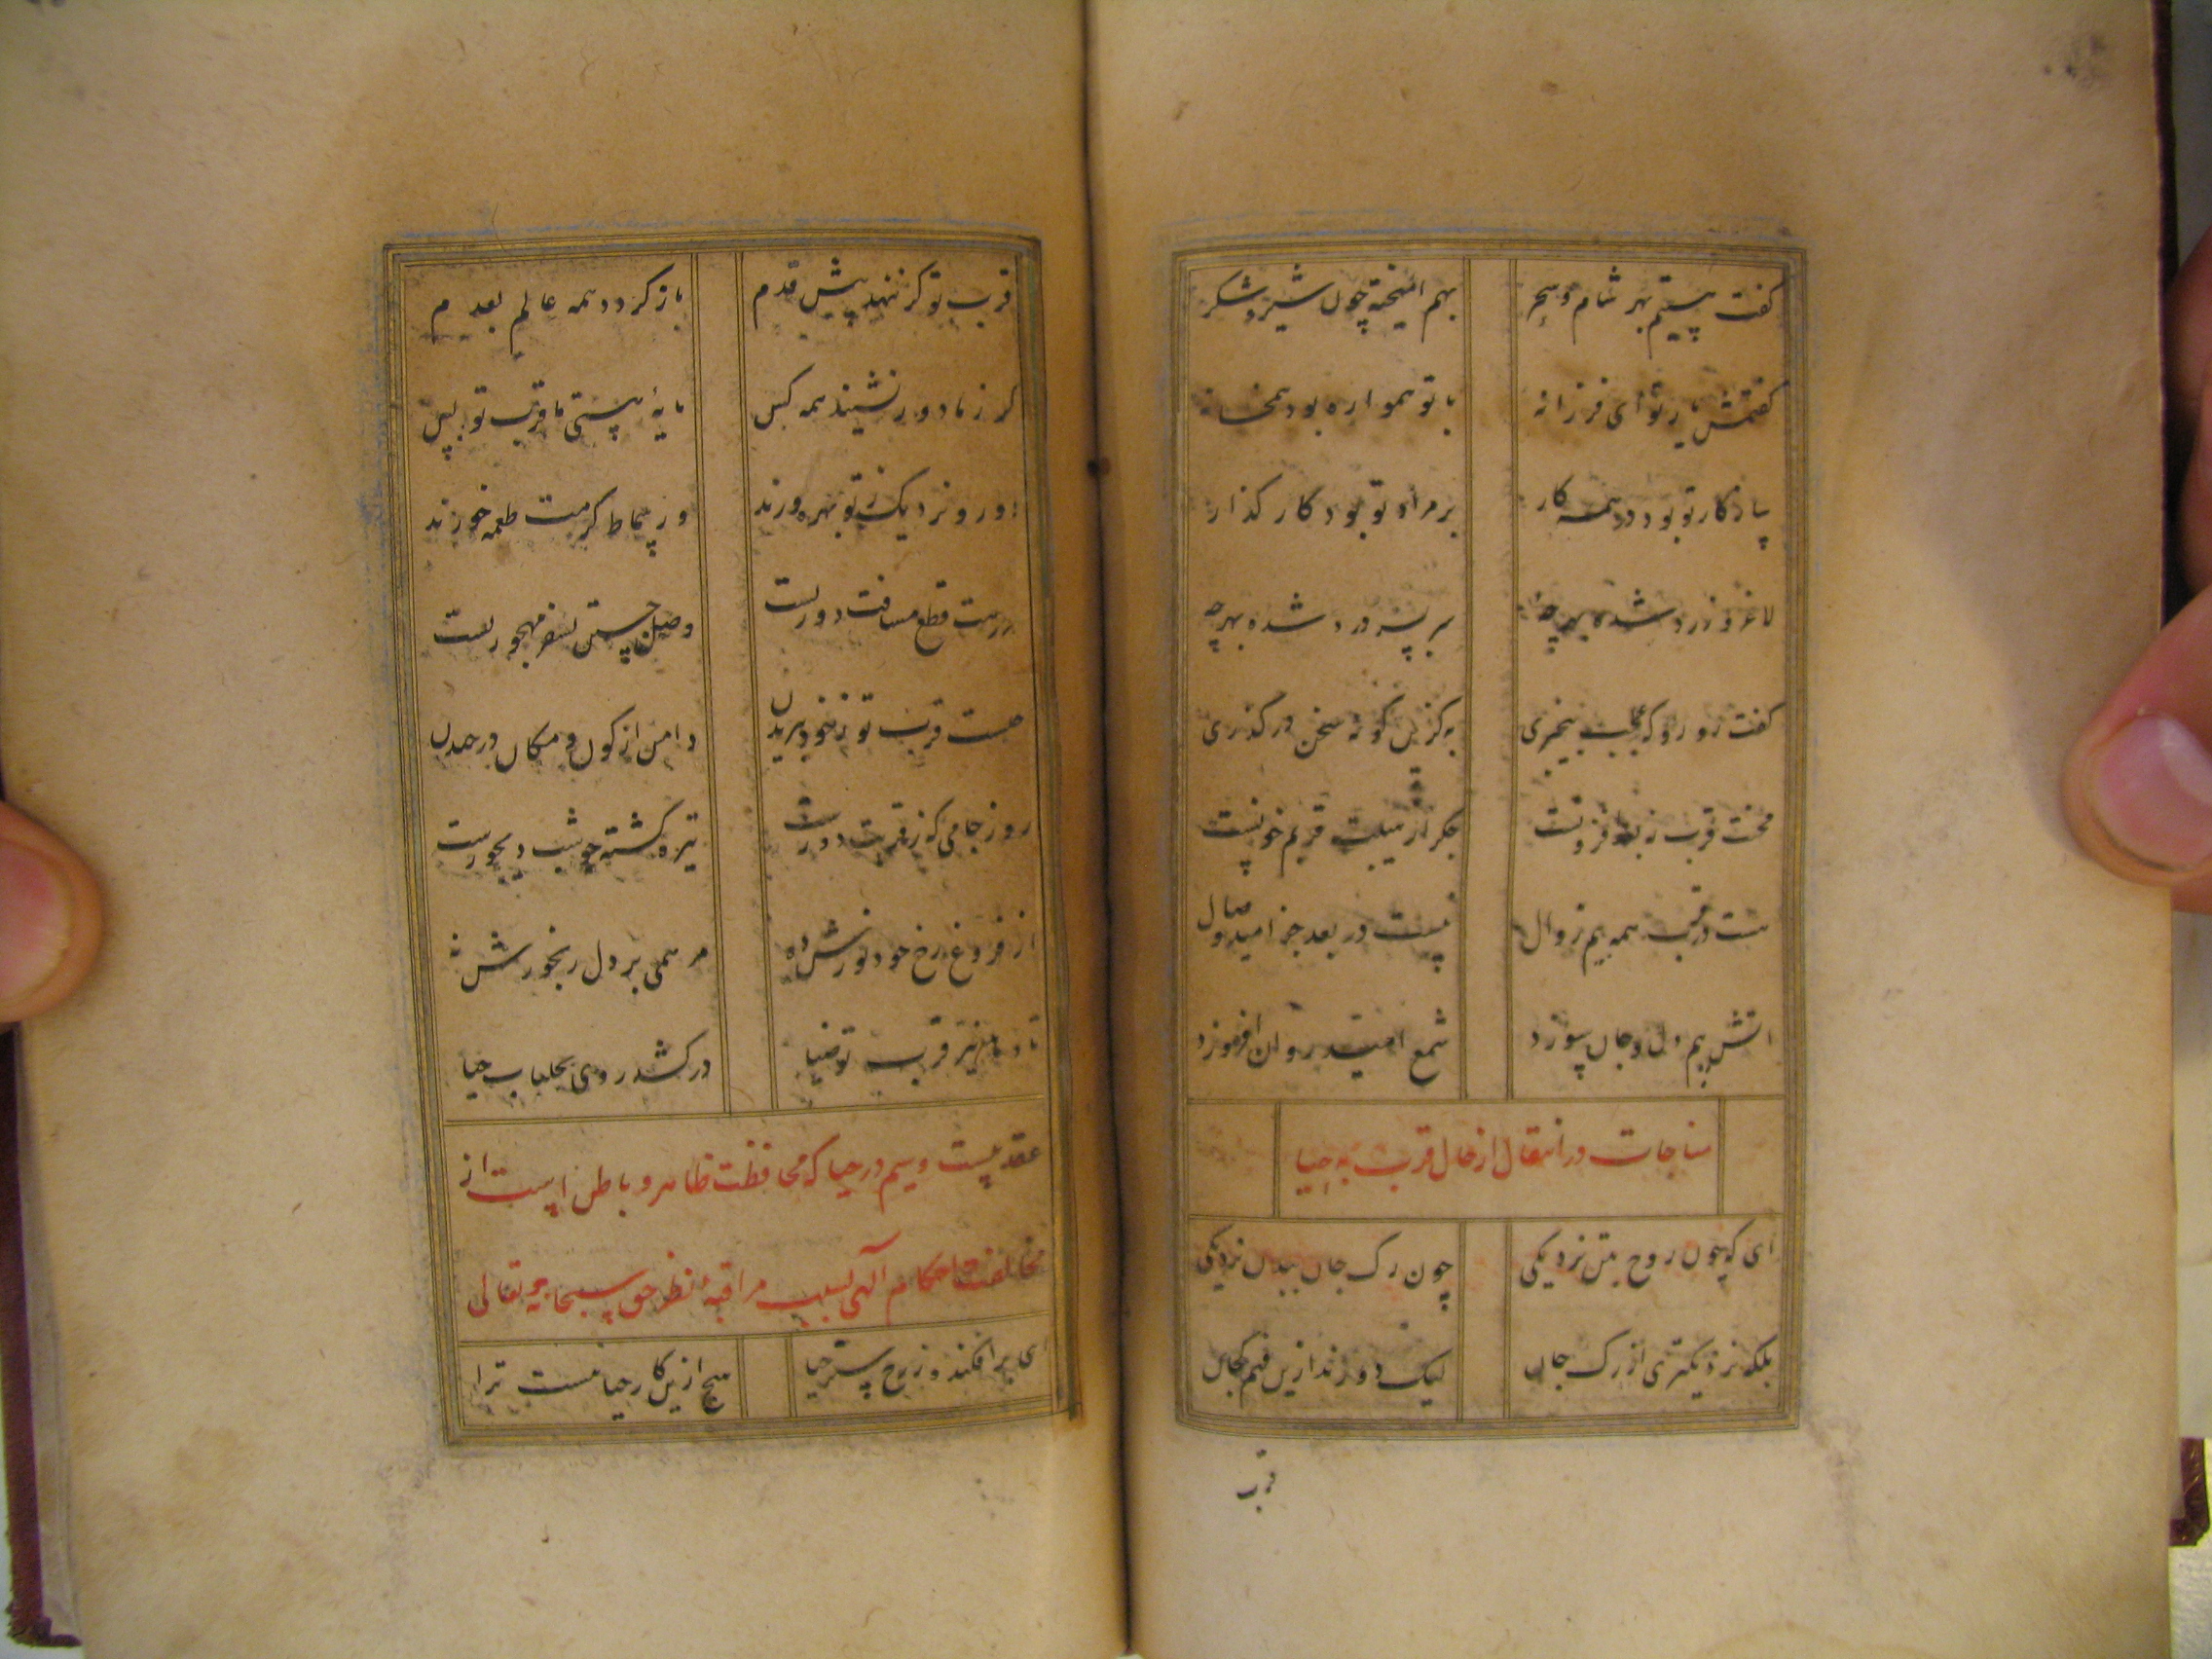 کفت هستیم بهر شام و سحر بهم امیخته چون شیر و شکر
کفتمش یار تو ای فرزانه با تو همواره بود همخانه
سازکار تو بود در همه کار بر مراد تو بود کار کذار
لاغر و زرد شده بهر چه سر بسر درد شده بهر چه
کفت رو رو که عجب بیخبری به کزین کونه سخن در کذری
محنت قرب ز بعد افزونست جکر از هیبت قربم خونست
هست در قرب همه بیم زوال نیست در بعد جز امید وصال
اتش بیم دل و جان سوزد شمع امید روان افروزد
مناجات در انتقال از حال قرب به حیا
ای که چون روح بتن نزدیکی چون رک جان ببدن نزدیکی
بلکه نزدیکتری از رک جان لیک دورند ازین فهم کسان
قرب
قرب تو کر ننهد پیش قدم باز کردد همه عالم بعدم
کر ز ما دور نشیند همه کس مایهٔ هستی ما قرب تو بس
دور و نزدیک ز تو بهره ورند وز سماط کرمت طعمه خورند
در رهت قطع مسافت دوریست وصل جستن سفر مهجوریست
هست قرب تو ز خود ببریدن دامن از کون و مکان در چیدن
روز جامی که ز قربت دورست تیره کشته چو شب دیجورست
از فروغ رخ خود نورش ده مرهمی بر دل رنجورش نه
تا دهد نیر قرب تو ضیا در کشد روی بجلباب حیا
عقد بیست و سیم در حیا که محافظت ظاهر و باطن است از
مخالفت احکام الهی بسبب مراقبهٔ نظر حق سبحانه و تعالی
ای برافکنده ز رخ ستر حیا هیچ ازین کار حیا نیست ترا